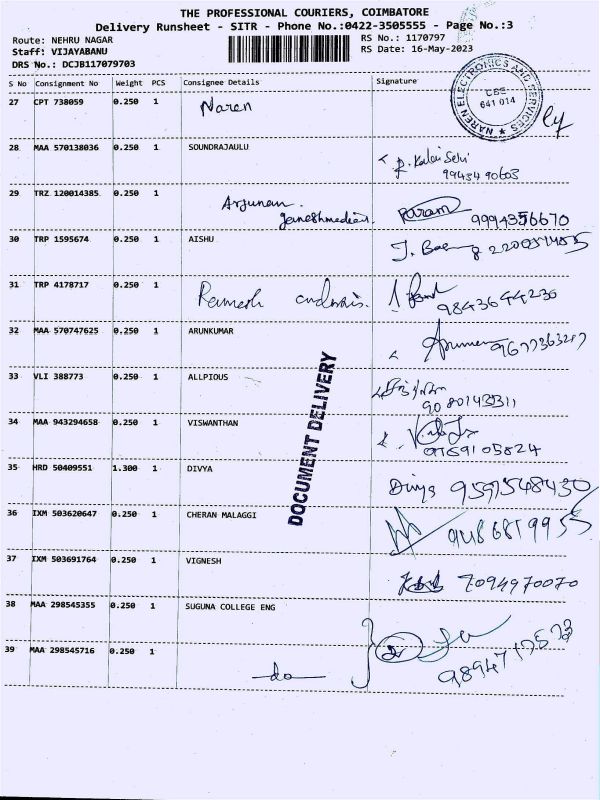 THE PROFESSIONAL COURIERS, COIMBATORE
Delivery Runsheet - SITR - Phone No.:0422-3505555 - Page No.:3
Route: NEHRU NAGAR
RS No.: 1170797
Staff: VIJAYABANU
RS Date: 16-May-2023
DRS No.: DCJB117079703
S No Consignment No Weight PCS Consignee Details Signature
27 CPT 738059 0.250 1 Naren
NAREN ELECTRONICS AND SERVICES ★
CBE
641 014
28 MAA 570138036 0.250 1 SOUNDRAJAULU
P. Kalai Selvi
99434 90603
29 TRZ 120014385 0.250 1 Arjunan
param 9994356670
30 TRP 1595674 0.250 1 AISHU
31 TRP 4178717 0.250 1 Ramesh
9843644230
32 MAA 570747625 0.250 1 ARUNKUMAR
33 VLI 388773 0.250 1 ALLPIOUS
34 MAA 943294658 0.250 1 VISWANTHAN
9789105824
35 HRD 50409551 1.300 1 DIVYA
Divya 9591548430
36 IXM 503620647 0.250 1 CHERAN MALAGGI
9486819955
37 IXM 503691764 0.250 1 VIGNESH
7094970070
38 MAA 298545355 0.250 1 SUGUNA COLLEGE ENG
39 MAA 298545716 0.250 1 do
DOCUMENT DELIVERY